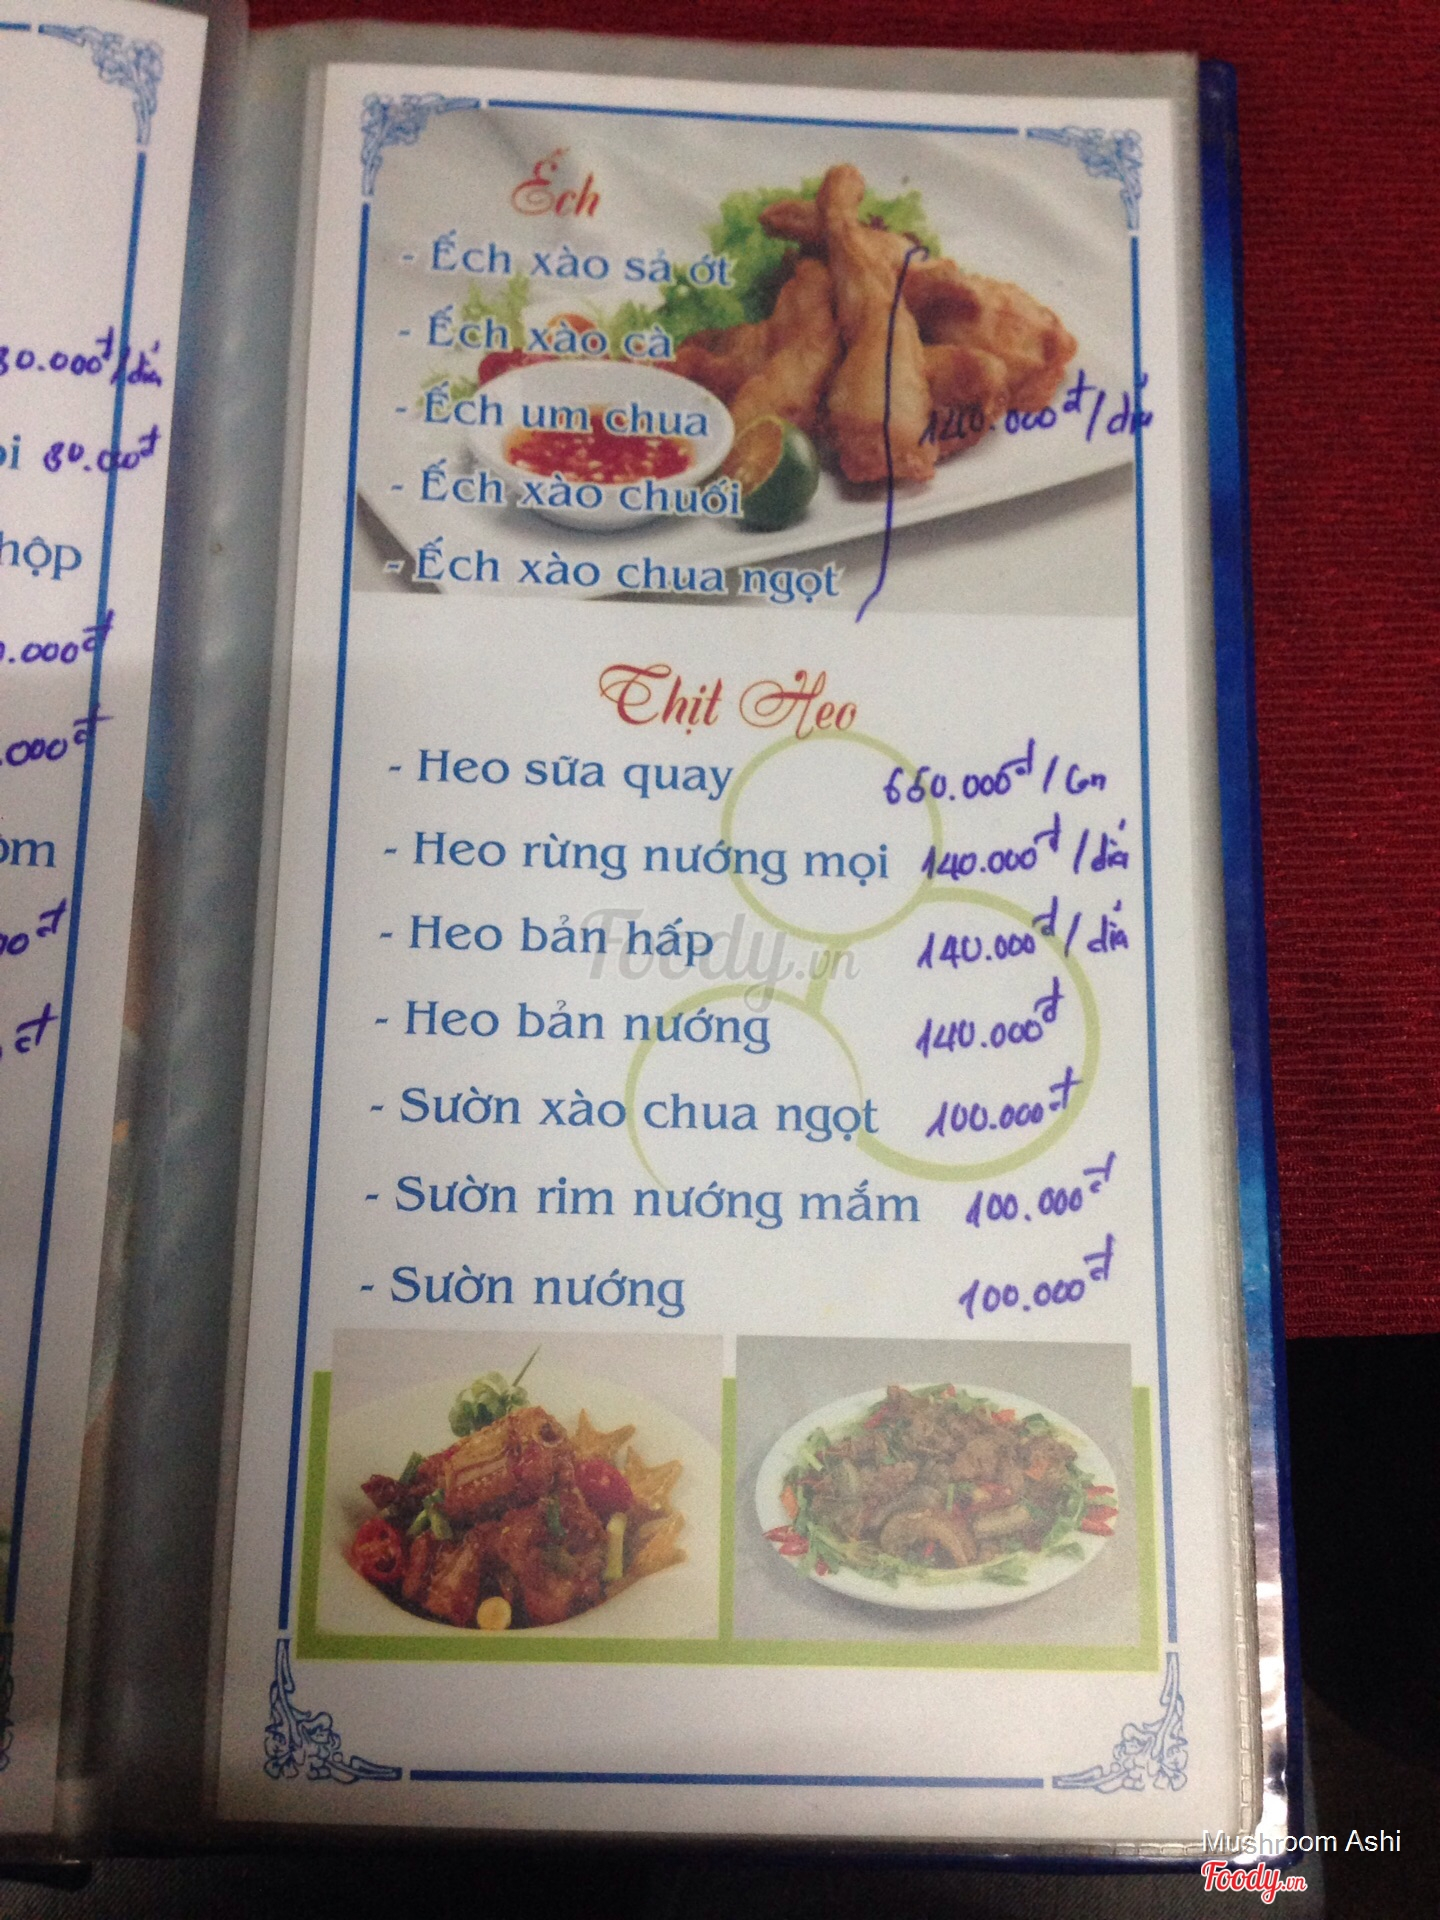 80.000đ/dĩa
80.000đ
hộp
.000đ
.000đ
đ
Ếch
- Ếch xào sả ớt
- Ếch xào cà
- Ếch um chua 140.000đ/dĩa
- Ếch xào chuối
- Ếch xào chua ngọt
Thịt Heo
- Heo sữa quay 660.000đ/con
- Heo rừng nướng mọi 140.000đ/dĩa
- Heo bản hấp 140.000đ/dĩa
- Heo bản nướng 140.000đ
- Sườn xào chua ngọt 100.000đ
- Sườn rim nướng mắm 100.000đ
- Sườn nướng 100.000đ
Foody.vn
Mushroom Ashi
Foody.vn